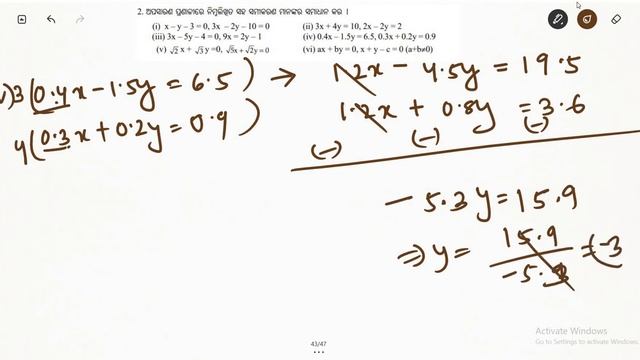 2. ଅପସାରଣ ପ୍ରଣାଳୀରେ ନିମ୍ନଲିଖିତ ସହ ସମୀକରଣ ମାନଙ୍କର ସମାଧାନ କର ।
(i) x – y – 3 = 0, 3x – 2y – 10 = 0 (ii) 3x + 4y = 10, 2x – 2y = 2
(iii) 3x – 5y – 4 = 0, 9x = 2y – 1 (iv) 0.4x – 1.5y = 6.5, 0.3x + 0.2y = 0.9
(v) √2 x + √3 y = 0, √3x + √2y = 0 (vi) ax + by = 0, x + y – c = 0 (a+b≠0)
v) 3 (0.4x – 1.5y = 6.5) → 1.2x – 4.5y = 19.5
4 (0.3x + 0.2y = 0.9) 1.2x + 0.8y = 3.6
(–) (–) (–)
– 5.3y = 15.9
⇒ y = 15.9 / –5.3 = –3
43/47
Activate Windows
Go to Settings to activate Windows.